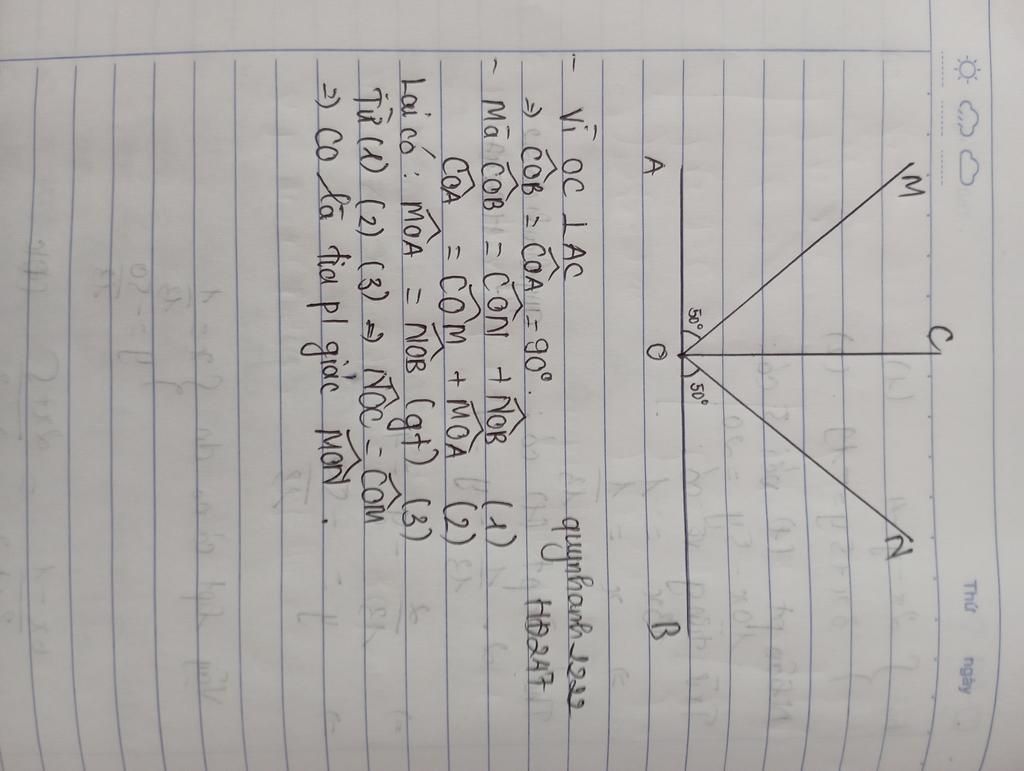 Thứ
ngày
M
C
N
50°
50°
A
O
B
quynhanh1222
HĐ247
- Vì OC ⊥ AC
=> \widehat{COB} = \widehat{COA} = 90°.
- Mà \widehat{COB} = \widehat{CON} + \widehat{NOB} (1)
\widehat{COA} = \widehat{COM} + \widehat{MOA} (2)
Lại có : \widehat{MOA} = \widehat{NOB} (gt) (3)
Từ (1) (2) (3) => \widehat{NOC} = \widehat{COM}
=) CO là tia p/ giác \widehat{MON} .